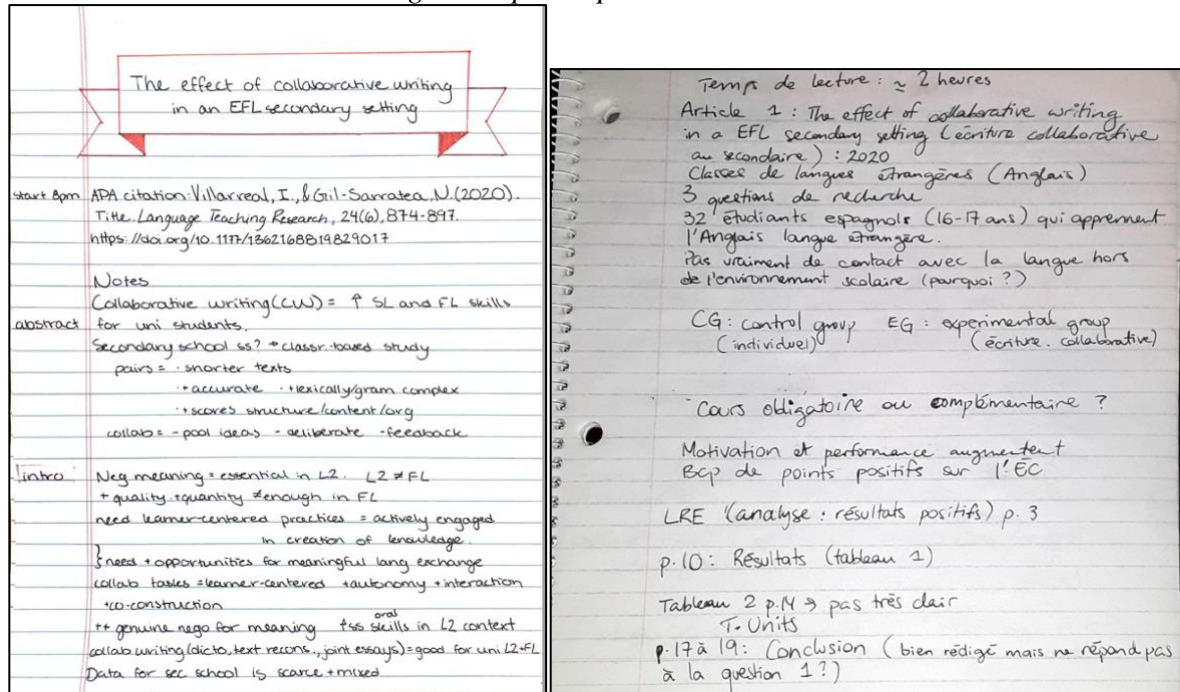 The effect of collaborative writing
in an EFL secondary setting
start 8pm APA citation: Villarreal, I., & Gil-Sarratea, N. (2020).
Title. Language Teaching Research, 24(6), 874-897.
https://doi.org/10.1177/1362168819829017
Notes
Collaborative writing (CW) = ↑ SL and FL skills
abstract for uni students.
Secondary school ss? + classr. based study
pairs = · shorter texts
· + accurate · + lexically/gram complex
· + scores structure/content/org
collab = - pool ideas - deliberate - feedback
intro Neg meaning = essential in L2. L2 ≠ FL
+ quality + quantity ≠ enough in FL
need learner-centered practices = actively engaged
in creation of knowledge.
} need + opportunities for meaningful lang exchange
collab tasks = learner-centered + autonomy + interaction
+ co-construction
++ genuine nego for meaning + ss oral skills in L2 context
collab writing (dicto, text recons., joint essays) = good for uni L2+FL
Data for sec school is scarce + mixed
Temps de lecture : ~ 2 heures
Article 1 : The effect of collaborative writing
in a EFL secondary setting (écriture collaborative
au secondaire) : 2020
Classes de langues étrangères (Anglais)
3 questions de recherche
32 étudiants espagnols (16-17 ans) qui apprennent
l'Anglais langue étrangère.
Pas vraiment de contact avec la langue hors
de l'environnement scolaire (pourquoi ?)
CG : control group EG : experimental group
(individuel) (écriture. collaborative)
Cours obligatoire ou complémentaire ?
Motivation et performance augmentent
BCP de points positifs sur l'ÉC
LRE (analyse : résultats positifs) p. 3
p.10 : Résultats (tableau 1)
Tableau 2 p.14 → pas très clair
T. Units
p.17 à 19 : Conclusion (bien rédigé mais ne répond pas
à la question 1 ?)